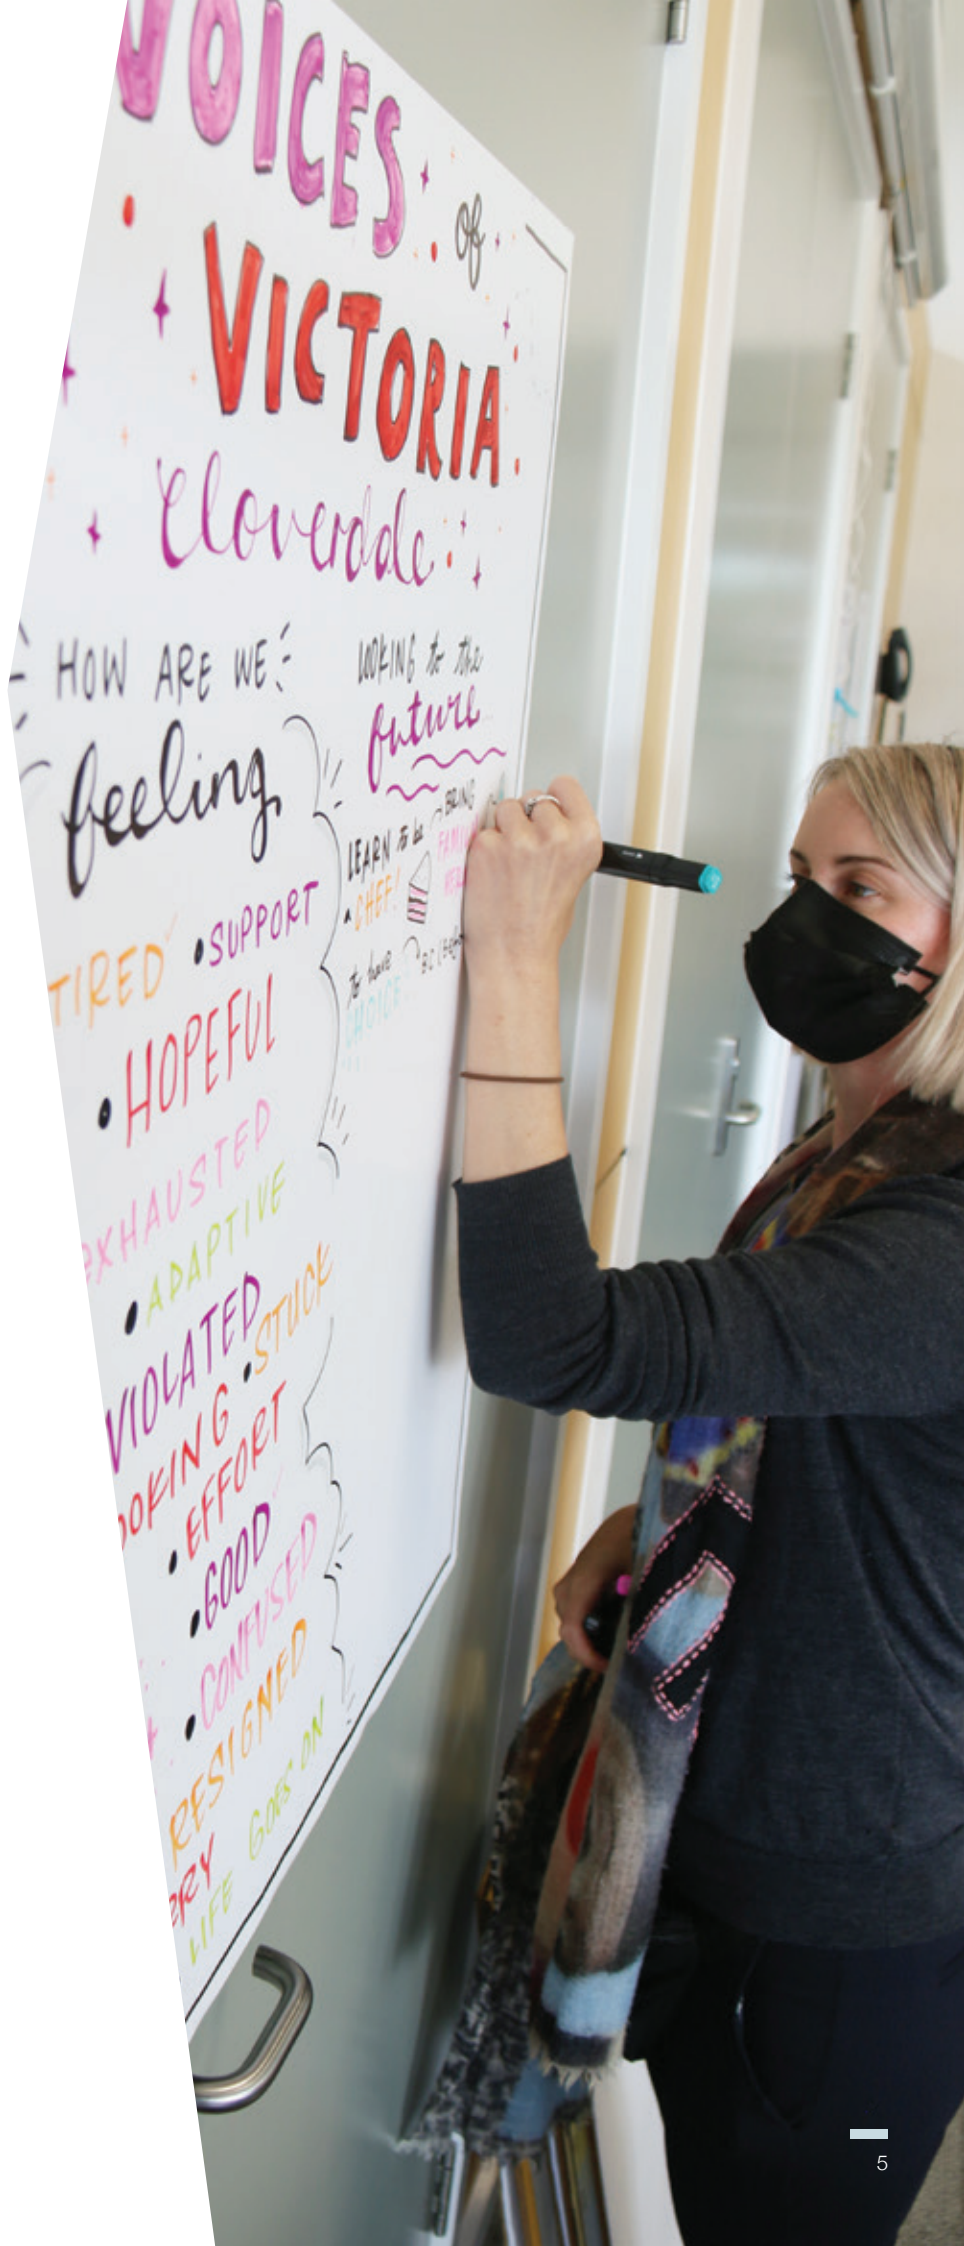 VOICES
of
VICTORIA
Cloverdale
HOW ARE WE
feeling
TIRED
• SUPPORT
• HOPEFUL
EXHAUSTED
• ADAPTIVE
VIOLATED
• STUCK
OOKING
• EFFORT
• GOOD
• CONFUSED
RESIGNED
ERY
LIFE GOES ON
LOOKING to the
future
LEARN to be
a CHEF!
to have
CHOICE
BRING
BC (Befo
5